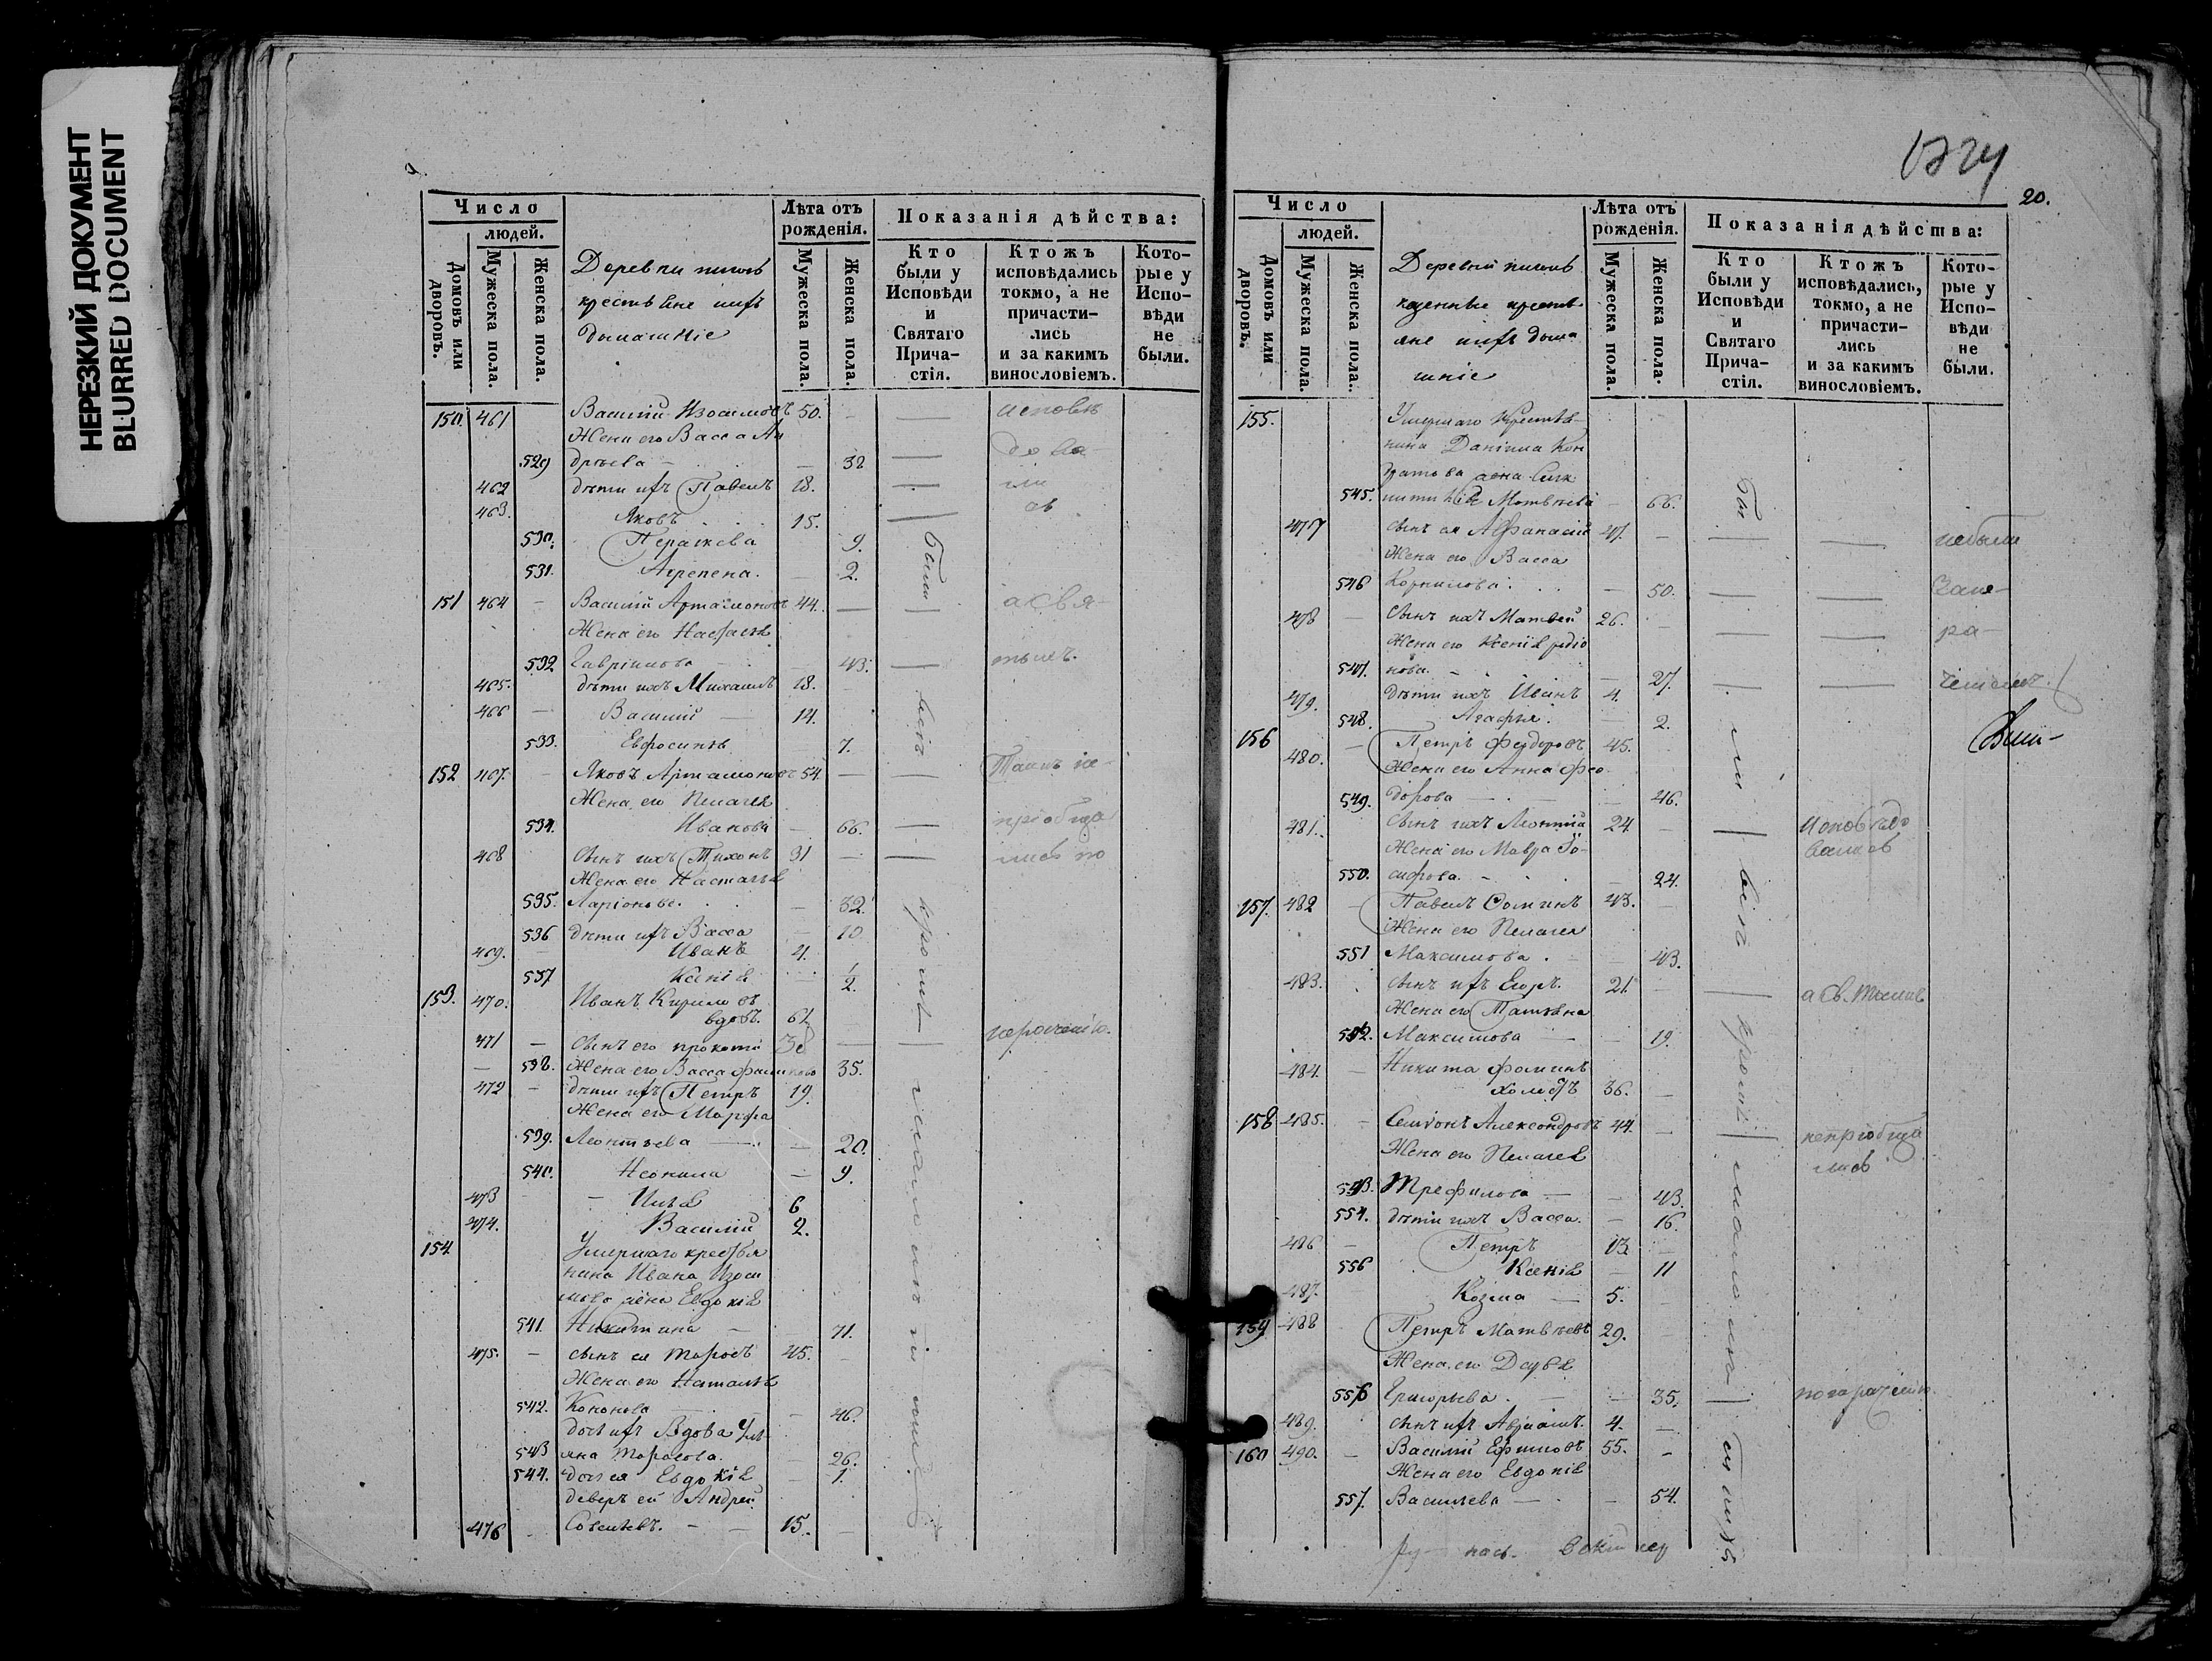 НЕРЕЗКИЙ ДОКУМЕНТ
BLURRED DOCUMENT
Число
людей.
Домовъ или дворовъ.
Мужеска пола.
Женска пола.
крестьяне ихъ
домашніе
Лѣта отъ рожденія.
Мужеска пола.
Женска пола.
Показанія дѣйства:
Кто были у Исповѣди и Святаго Прича-стія.
Ктожъ исповѣдались токмо, а не причасти-лись и за какимъ винословіемъ.
Кото-рые у Испо-вѣди не были.
150. 461 Василій Изосимовъ 50.
Жена его Васса Ан
529 дрѣева - 32
462 дѣти ихъ Павелъ 18.
463. Яковъ 15.
530. Параскева 9.
531. Агрепена. 2.
151 464 Василій Артамоновъ 44.
Жена его
532 Гаврилова 43.
465. дѣти ихъ Михаилъ 18.
466 Василий 14.
533. Евфросинья 7.
152 467. Яковъ Артамоновъ 54.
Жена его Пелагея
534. Иванова 66.
468 сынъ ихъ Тихонъ 31
Жена его Настасья
535. Ларіонова. 32.
536 дѣти ихъ Васса 10
469. Иванъ 4.
537 Ксенія 2.
153. 470. Иванъ Кириловъ
вдовъ. 61
471 сынъ его Прокопій 38
538. Жена его Васса 35.
472 дѣти ихъ Петръ 19.
Жена его Марфа
539. Леонтьева 20.
540. Неонила 9.
473 Илья 6
474. Василій 2.
154 Умершаго крестья
нина Ивана Изоси
мова жена Евдокія
541. Никитина 71.
475. сынъ ея Тарасъ 45.
Жена его Наталья
542. Кононова 46.
дочь ихъ Вдова Уль
543 яна Тарасова. 26.
544. дочь ея Евдокія 1.
деверь ей Андрей
476 Савельевъ. 15.
20.
Число
людей.
Домовъ или дворовъ.
Мужеска пола.
Женска пола.
казенные крестья
яне ихъ дома
шніе
Лѣта отъ рожденія.
Мужеска пола.
Женска пола.
Показанія дѣйства:
Кто были у Исповѣди и Святаго Прича-стія.
Ктожъ исповѣдались, токмо, а не причасти-лись и за какимъ винословіемъ.
Кото-рые у Испо-вѣди не были.
155. Умершаго Крестья-
нина Даніила Кон
дратова жена
545. Матвѣева 66.
477 сынъ ея Афанасій 47. небыли
Жена его Васса
546 Корнилова. 50.
478 сынъ ихъ Матвей 26.
Жена его Ксенія Родіо
547. нова. 27.
479. дѣти ихъ Иванъ 4.
548. Агафья. 2.
156 480. Петръ Федоровъ 45.
Жена его Анна Фео
549. дорова 46.
481. сынъ ихъ Леонтій 24
Жена его Мавра Іо-
550. сифова. 24.
157. 482 Павелъ Фоминъ 43.
Жена его Пелагея
551 Максимова. 43.
483. сынъ ихъ Егоръ. 21.
Жена его Татьяна
552. Максимова 19.
484. Никита Фоминъ
холостъ 36.
158 485. Семіонъ Александровъ 44.
Жена его Пелагея
553. Трефилова 43.
554. дѣти ихъ Васса. 16.
486 Петръ 13
556 Ксенія 11
487. Козма 5.
159 488 Петръ Матвѣевъ 29.
Жена его Дарья
5576 Григорьева. 35.
489. сынъ ихъ Авраамъ. 4.
160 490. Василій Ефимовъ 55.
Жена его Евдокія
557. Васильева 54.